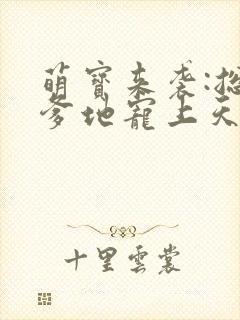 萌寶来袭:總
爹地寵上天
十里雲裳